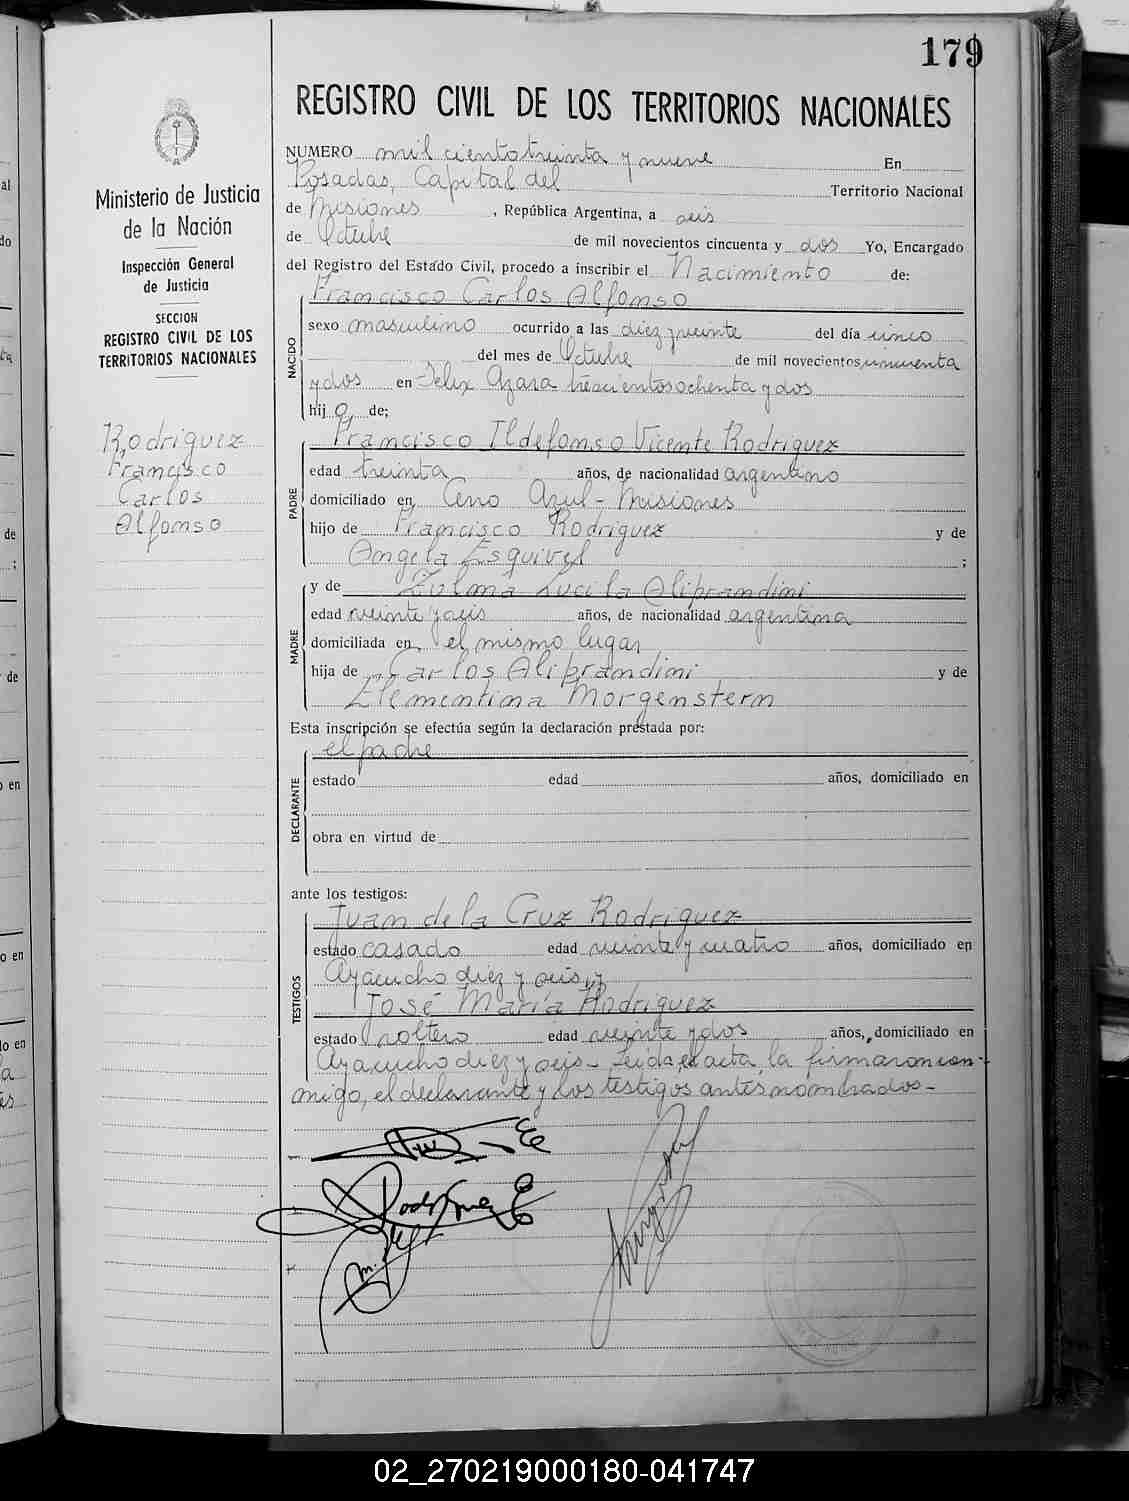 179
REGISTRO CIVIL DE LOS TERRITORIOS NACIONALES
Ministerio de Justicia
de la Nación
Inspección General
de Justicia
SECCION
REGISTRO CIVIL DE LOS
TERRITORIOS NACIONALES
Rodriguez
Francisco
Carlos
Alfonso
NUMERO mil ciento treinta y nueve En
Posadas, Capital del Territorio Nacional
de Misiones, República Argentina, a seis
de Octubre de mil novecientos cincuenta y dos Yo, Encargado
del Registro del Estado Civil, procedo a inscribir el Nacimiento de:
NACIDO
Francisco Carlos Alfonso
sexo masculino ocurrido a las diez y veinte del día cinco
del mes de Octubre de mil novecientos cincuenta
y dos en Felix Azara trescientos ochenta y dos
hijo de;
PADRE
Francisco Ildefonso Vicente Rodriguez
edad treinta años, de nacionalidad argentino
domiciliado en Cerro Azul - Misiones
hijo de Francisco Rodriguez y de
Angela Esquivel ;
MADRE
y de Zulma Lucila Aliprandini
edad veinte y seis años, de nacionalidad argentina
domiciliada en el mismo lugar
hija de Carlos Aliprandini y de
Clementina Morgenstern
Esta inscripción se efectúa según la declaración prestada por:
DECLARANTE
el padre
estado edad años, domiciliado en
obra en virtud de
ante los testigos:
TESTIGOS
Juan de la Cruz Rodriguez
estado casado edad veinte y cuatro años, domiciliado en
Ayacucho diez y seis, y
José María Rodriguez
estado soltero edad veinte y dos años, domiciliado en
Ayacucho diez y seis - Leida el acta, la firmaron con-
migo, el declarante y los testigos antes nombrados -
Rodriguez
02_270219000180-041747